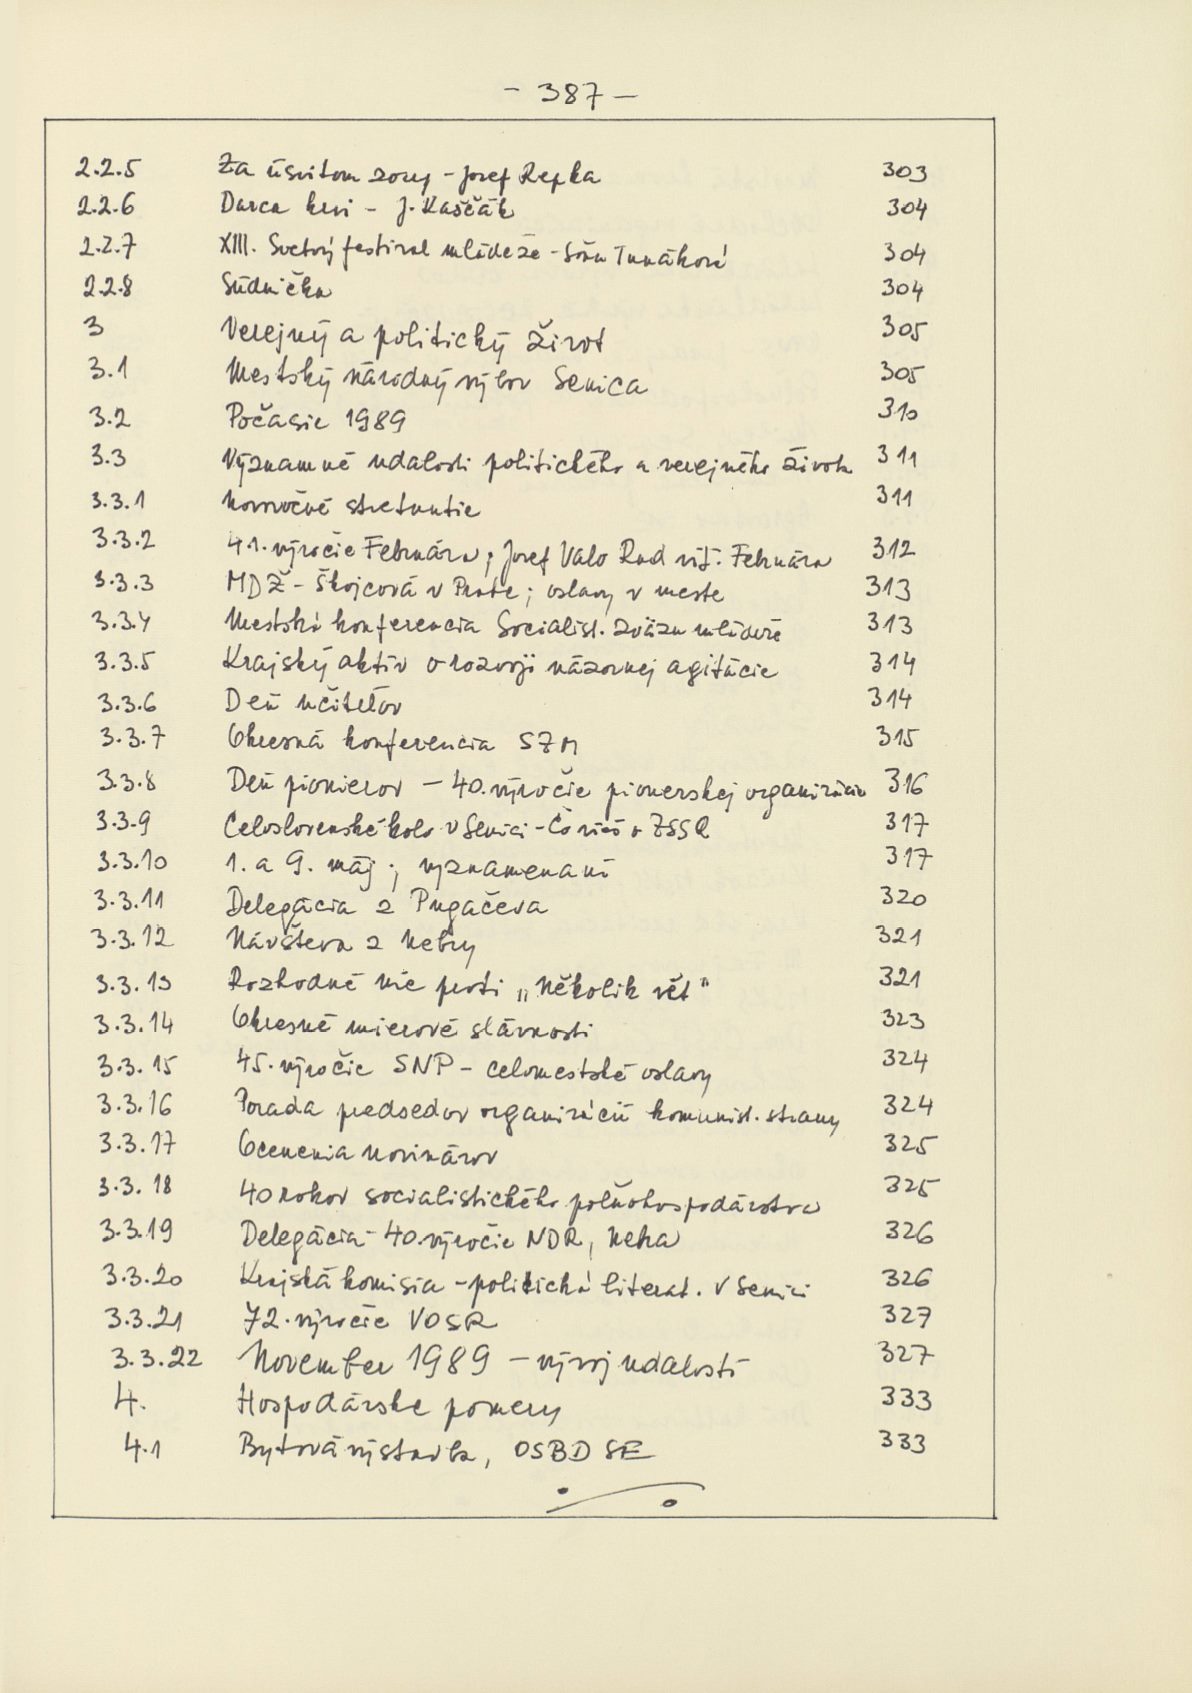 - 387 -
2.2.5 Za úsvitom zory - Jozef Repka 303
2.2.6 Darca krvi - J. Kaščák 304
2.2.7 XIII. Svetový festival mládeže - Soňa Tunáková 304
2.2.8 Súdnička 304
3 Verejný a politický život 305
3.1 Mestský národný výbor Senica 305
3.2 Počasie 1989 310
3.3 Významné udalosti politického a verejného života 311
3.3.1 Novoročné stretnutie 311
3.3.2 41. výročie Februára; Jozef Valo Rad víť. Februára 312
3.3.3 MDŽ - Škojcová v Prahe; oslavy v meste 313
3.3.4 Mestská konferencia Socialist. zväzu mládeže 313
3.3.5 Krajský aktív o rozvoji názornej agitácie 314
3.3.6 Deň učiteľov 314
3.3.7 Okresná konferencia SZM 315
3.3.8 Deň pionierov - 40. výročie pionierskej organizácie 316
3.3.9 Celoslovenské kolo v Senici - Čo vieš o ZSSR 317
3.3.10 1. a 9. máj; vyznamenaní 317
3.3.11 Delegácia z Pugačeva 320
3.3.12 Návšteva z Nebry 321
3.3.13 Rozhodné nie proti „Několik vět" 321
3.3.14 Okresné mierové slávnosti 323
3.3.15 45. výročie SNP - celomestské oslavy 324
3.3.16 Porada predsedov organizácií komunist. strany 324
3.3.17 Ocenenia novinárov 325
3.3.18 40 rokov socialistického poľnohospodárstva 325
3.3.19 Delegácia - 40. výročie NDR, Nebra 326
3.3.20 Krajská komisia - politická literat. v Senici 326
3.3.21 72. výročie VOSR 327
3.3.22 November 1989 - vývoj udalostí 327
4. Hospodárske pomery 333
4.1 Bytová výstavba, OSBD SE 333